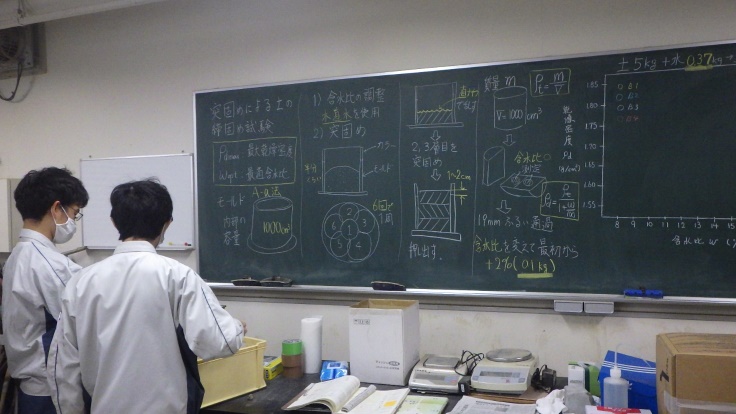 突固めによる土の
締固め試験
ρdmax 最大乾燥密度
wopt 最適含水比
A-a法
モールド
内部の
容量
1000cm³
1) 含水比の調整
水道水を使用
2) 突固め
カラー
モールド
6回で
1周
1
2
3
4
5
6
2,3層目を
突固め
1~2cm
押出す.
質量 m
ρt = m/V
V=1000cm³
含水比
測定
19mm ふるい通過
含水比を変えて最初から
+2%(0.1kg)
土 5kg + 水 0.37kg
乾燥密度 ρd (g/cm³)
1.85
1.80
1.75
1.70
1.65
1.60
1.55
8 9 10 11 12 13 14 15
含水比 w